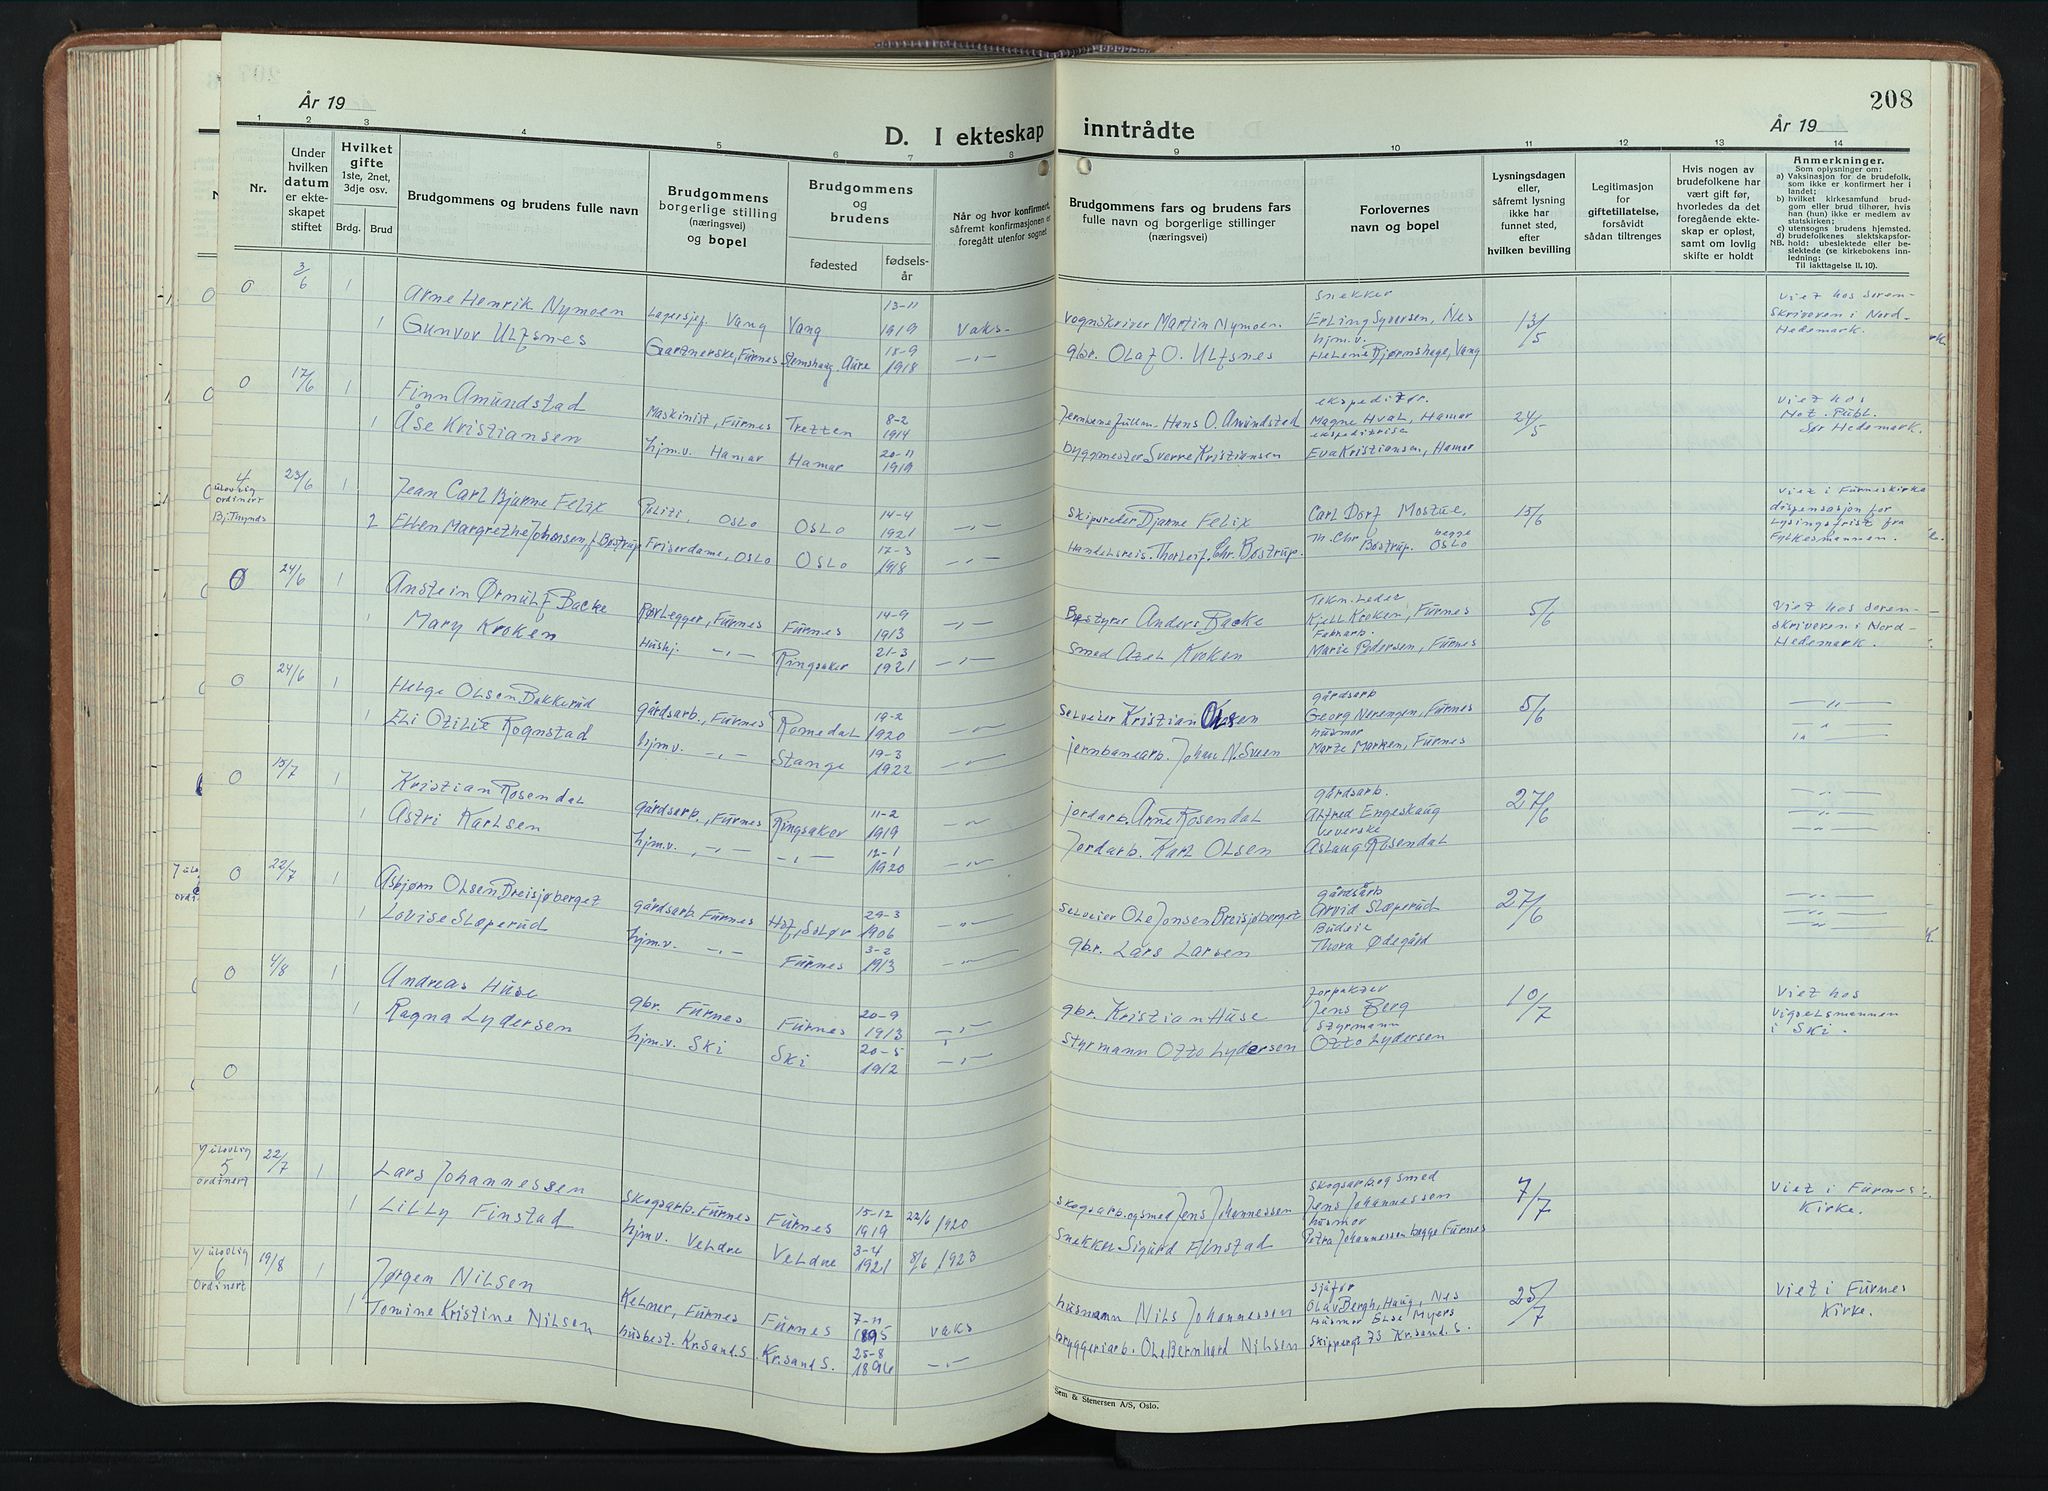 208
År 19
D. I ekteskap inntrådte
År 19
1 2 3 4 5 6 7 8 9 10 11 12 13 14
Nr.
Under hvilken datum er ekteskapet stiftet
Hvilket gifte 1ste, 2net, 3dje osv.
Brdg. Brud
Brudgommens og brudens fulle navn
Brudgommens borgerlige stilling (næringsvei) og bopel
Brudgommens og brudens
fødested
fødselsår
Når og hvor konfirmert, såfremt konfirmasjonen er foregått utenfor sognet
Brudgommens fars og brudens fars fulle navn og borgerlige stillinger (næringsvei)
Forlovernes navn og bopel
Lysningsdagen eller, såfremt lysning ikke har funnet sted, efter hvilken bevilling
Legitimasjon for giftetillatelse, forsåvidt sådan tiltrenges
Hvis nogen av brudefolkene har vært gift før, hvorledes da det foregående ekteskap er opløst, samt om lovlig skifte er holdt
Anmerkninger.
Som oplysninger om:
a) Vaksinasjon for de brudefolk, som ikke er konfirmert her i landet;
b) hvilket kirkesamfund brudgom eller brud tilhører, hvis han (hun) ikke er medlem av statskirken;
c) utensogns brudens hjemsted.
d) brudefolkenes slektskapsforhold: ubeslektede eller beslektede (se kirkebokens innledning:
NB. Til iakttagelse II. 10).
0 3/6 1 Arne Henrik Nymoen Lagersjef. Vang Vang 13-11 1919 Vaks- Vognskriver Martin Nymoen snekker Erling Syversen, Nes 13/5 Viet hos sorenskriveren i Nord-Hedemark.
1 Gunvor Ulfsnes Gartnerske, Furnes Stemshaug, Aure 18-9 1918 -"- gbr. Olaf O. Ulfsnes hjm.v. Helene Bjørnshage, Vang
0 17/6 1 Finn Amundstad Maskinist, Furnes Tretten 8-2 1914 Jernbanefullm. Hans O. Amundstad ekspeditør. Magne Hval, Hamar 24/5 Viet hos Not. Publ. Sør Hedemark.
1 Åse Kristiansen hjm.v. Hamar Hamar 20-11 1919 byggmester Sverre Kristiansen ekspeditrise Eva Kristiansen, Hamar
4 ulovlig ordinert Bj. Thynds 23/6 1 Jean Carl Bjarne Felix Politi, Oslo Oslo 14-4 1921 -"- Skipsreder Bjarne Felix Carl Dorf Mostue, 15/6 Viet i Furneskirke dispensasjon for Lysingsfrist fra Fylkesmannen.
2 Ellen Margrethe Johansen f. Bostrup Friserdame, Oslo Oslo 17-3 1918 -"- Handelsreis. Thorleif Chr. Bostrup. Th. Chr Bostrup. begge Oslo
0 24/6 1 Anstein Ørnulf Backe Rørlegger, Furnes Furnes 14-9 1913 -"- Bestyrer Anders Backe Tekn. Leder Kjell Kroken, Furnes 5/6 Viet hos sorenskriveren i Nord-Hedemark.
1 Mary Kroken Hushj. -"- Ringsaker 21-3 1921 -"- Smed Axel Kroken Fabrarb. Marie Pedersen, Furnes
0 24/6 1 Helge Olsen Bakkerud gårdsarb., Furnes Romedal 19-2 1920 -"- Selveier Kristian Olsen gårdsarb Georg Nerengen, Furnes 5/6 -"-
1 Eli Otilie Rognstad hjm.v. -"- Stange 19-3 1922 -"- jernbanearb. Johan N. Sveen husmor Marte Marken, Furnes -"-
0 15/7 1 Kristian Rosendal gårdsarb., Furnes Ringsaker 11-2 1919 -"- jordarb. Arne Rosendal gårdsarb. Alfred Engeskaug 27/6 -"-
1 Astri Karlsen hjm.v. -"- -"- 12-1 1920 -"- Jordarb. Karl Olsen veverske Aslaug Rosendal -"-
0 22/7 1 Asbjørn Olsen Breisjøberget gårdsarb. Furnes Hof, Soløv 29-3 1906 -"- Selveier Ole Jonsen Breisjøberget gårdsarb Arvid Slæperud 27/6 -"-
1 Lovise Slæperud hjm.v. -"- Furnes 3-2 1913 -"- gbr. Lars Larsen Budeie Thora Ødegård -"-
0 4/8 1 Andreas Huse gbr. Furnes Furnes 20-9 1913 -"- gbr. Kristian Huse Forpakter Jens Berg 10/7 Viet hos Vigselsmannen i Ski.
1 Ragna Lydersen hjm.v. Ski Ski 20-5 1912 -"- Styrmann Otto Lydersen Styrmann Otto Lydersen
0
v/ ulovlig 5 ordinert 22/7 1 Lars Johannessen Skogsarb. Furnes Furnes 15-12 1919 22/6 1920 Skogsarb. og smed Jens Johannessen Skogsarb. og smed Jens Johannessen 7/7 Viet i Furnes Kirke.
1 Lilly Finstad hjm.v. Veldre Veldre 3-4 1921 8/6 1923 Snekker Sigurd Finstad husmor Petra Johannessen begge Furnes
v/ ulovlig 6 Ordinert 19/8 1 Jørgen Nilsen Kelner, Furnes Furnes 7-11 1895 vaks husmann Nils Johannessen Sjåfør Olav Bergh, Haug, Nes 25/7 Viet i Furnes Kirke.
1 Tomine Kristine Nilsen husbest. Kr.sand S. Kr.sand S. 25-8 1896 -"- bryggeriarb. Ole Bernhard Nilsen Husmor Else Myers Skippergt 73 Kr.sand S.
Sem & Stenersen A/S, Oslo.